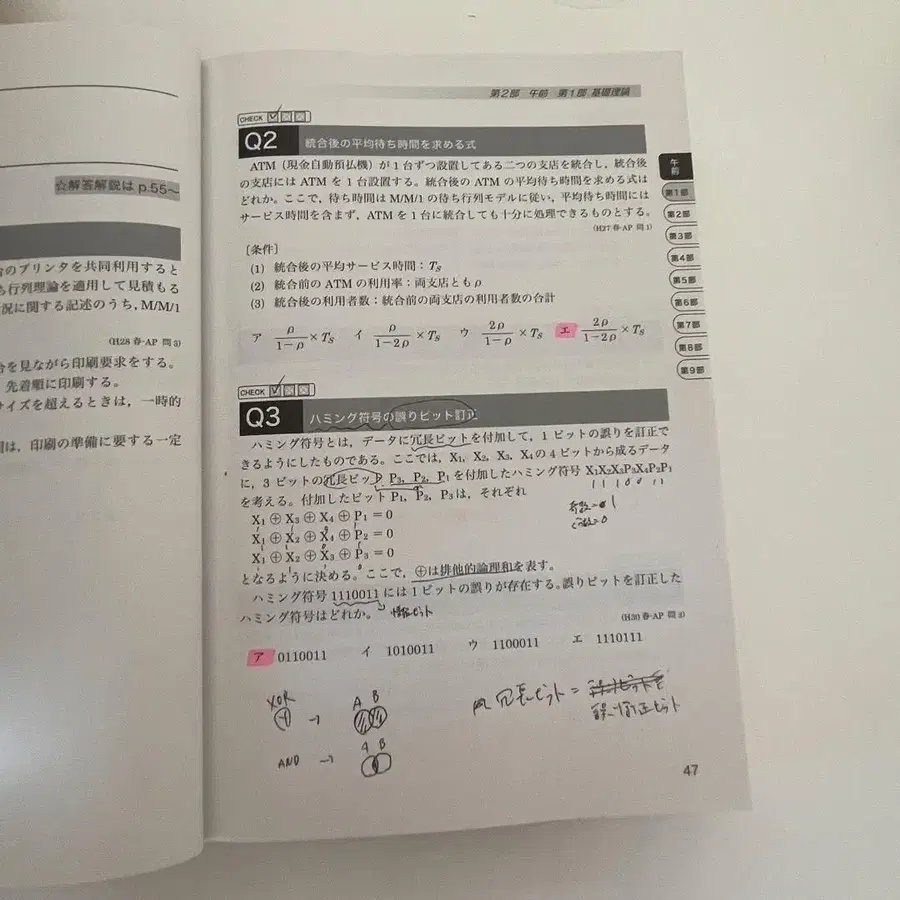 ☆解答解説は p.55～
のプリンタを共同利用すると
ち行列理論を適用して見積もる
況に関する記述のうち，M/M/1
(H28 春-AP 問3)
合を見ながら印刷要求をする。
先着順に印刷する。
イズを超えるときは，一時的
は，印刷の準備に要する一定
第2部 午前 第1部 基礎理論
CHECK
Q2 統合後の平均待ち時間を求める式
ATM（現金自動預払機）が1台ずつ設置してある二つの支店を統合し，統合後
の支店にはATMを1台設置する。統合後のATMの平均待ち時間を求める式は
どれか。ここで，待ち時間はM/M/1の待ち行列モデルに従い，平均待ち時間には
サービス時間を含まず，ATMを1台に統合しても十分に処理できるものとする。
(H27 春-AP 問1)
〔条件〕
(1) 統合後の平均サービス時間：Ts
(2) 統合前のATMの利用率：両支店ともρ
(3) 統合後の利用者数：統合前の両支店の利用者数の合計
ア ρ/(1−ρ) × Ts イ ρ/(1−2ρ) × Ts ウ 2ρ/(1−ρ) × Ts エ 2ρ/(1−2ρ) × Ts
CHECK
Q3 ハミング符号の誤りビット訂正
ハミング符号とは，データに冗長ビットを付加して，1ビットの誤りを訂正で
きるようにしたものである。ここでは，X₁，X₂，X₃，X₄の4ビットから成るデータ
に，3ビットの冗長ビット P₃，P₂，P₁を付加したハミング符号 X₁X₂X₃P₃X₄P₂P₁
1 1 1 0 0 1 1
を考える。付加したビット P₁，P₂，P₃は，それぞれ
奇数=1
偶数=0
X₁⊕X₃⊕X₄⊕P₁=0
X₁⊕X₂⊕X₄⊕P₂=0
X₁⊕X₂⊕X₃⊕P₃=0
となるように決める。ここで，⊕は排他的論理和を表す。
ハミング符号 1110011 には1ビットの誤りが存在する。誤りビットを訂正した
ハミング符号はどれか。 情報ビット
(H30 春-AP 問3)
ア 0110011 イ 1010011 ウ 1100011 エ 1110111
XOR A B
AND → A B
冗長ビット =
誤り訂正ビット
47
午前
第1部
第2部
第3部
第4部
第5部
第6部
第7部
第8部
第9部